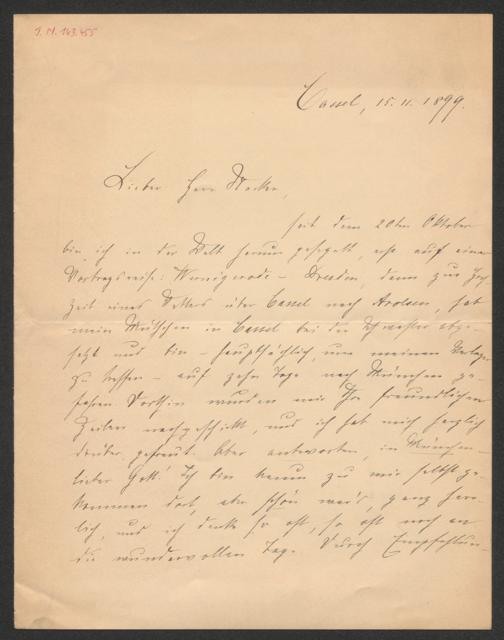 J. N. 163.455
Cassel, 15. 11. 1899.
Lieber Herr Wacker,
seit dem 20ten Oktober
bin ich in der Welt herum gesegelt, erst auf einer
Vortragsreise: Wernigerode – Dresden, dann zur Hoch-
zeit eines Vetters über Cassel nach Arolsen, hab
mein Mütschen in Cassel bei der Schwester abge-
setzt und bin – hauptsächlich, um meinen Verleger
zu treffen – auf zehn Tage nach München ge-
fahren. Dorthin wurden mir Ihre freundlichen
Zeilen nachgeschickt, und ich hab mich herzlich
drüber gefreut. Aber antworten, in München –
lieber Gott! Ich bin kaum zu mir selbst ge-
kommen dort, aber schön war's, ganz herr-
lich, und ich denke so oft, so oft noch an
die wundervollen Tage. Durch Empfehlun-